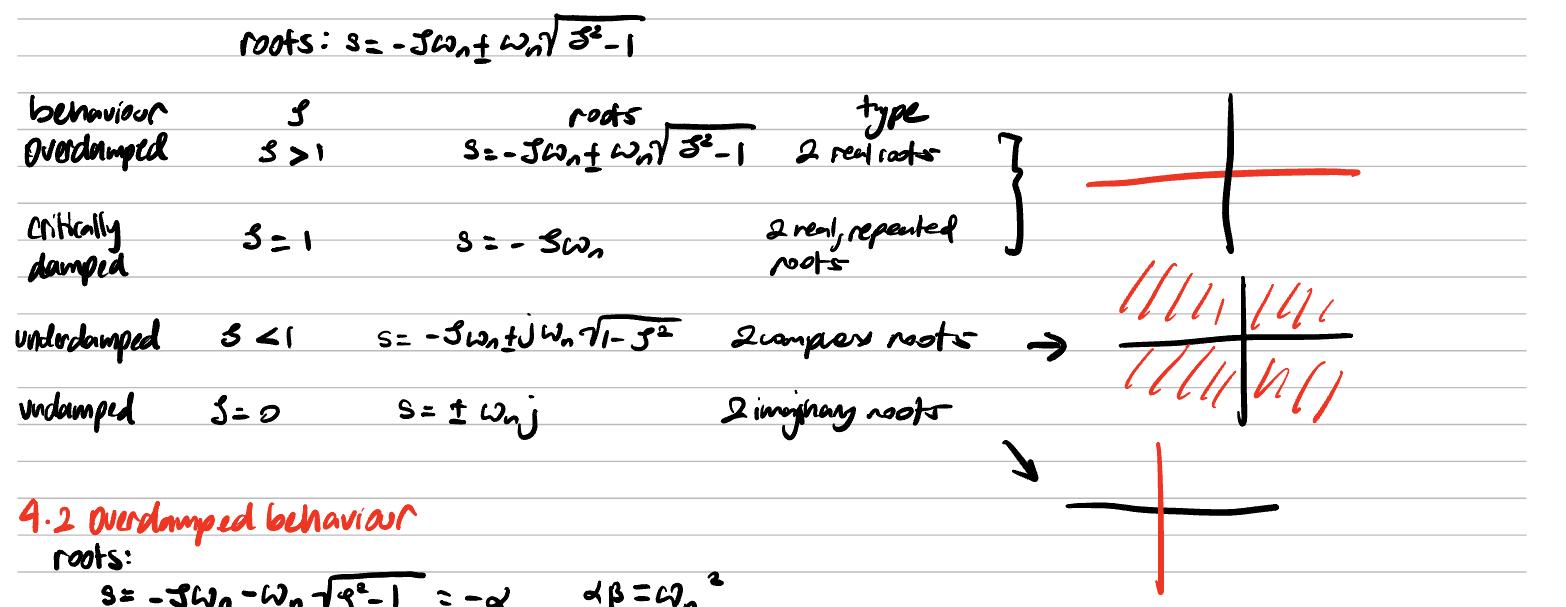 roots: s = -ζωₙ ± ωₙ√(ζ²-1)
behaviour ζ roots type
Overdamped ζ > 1 s = -ζωₙ ± ωₙ√(ζ²-1) 2 real roots
critically damped ζ = 1 s = - ζωₙ 2 real, repeated roots
underdamped ζ < 1 s = -ζωₙ ± jωₙ√(1-ζ²) 2 complex roots →
undamped ζ = 0 s = ± ωₙj 2 imaginary roots
4.2 Overdamped behaviour
roots:
s = -ζωₙ - ωₙ√(ζ²-1) = -α αβ = ωₙ²